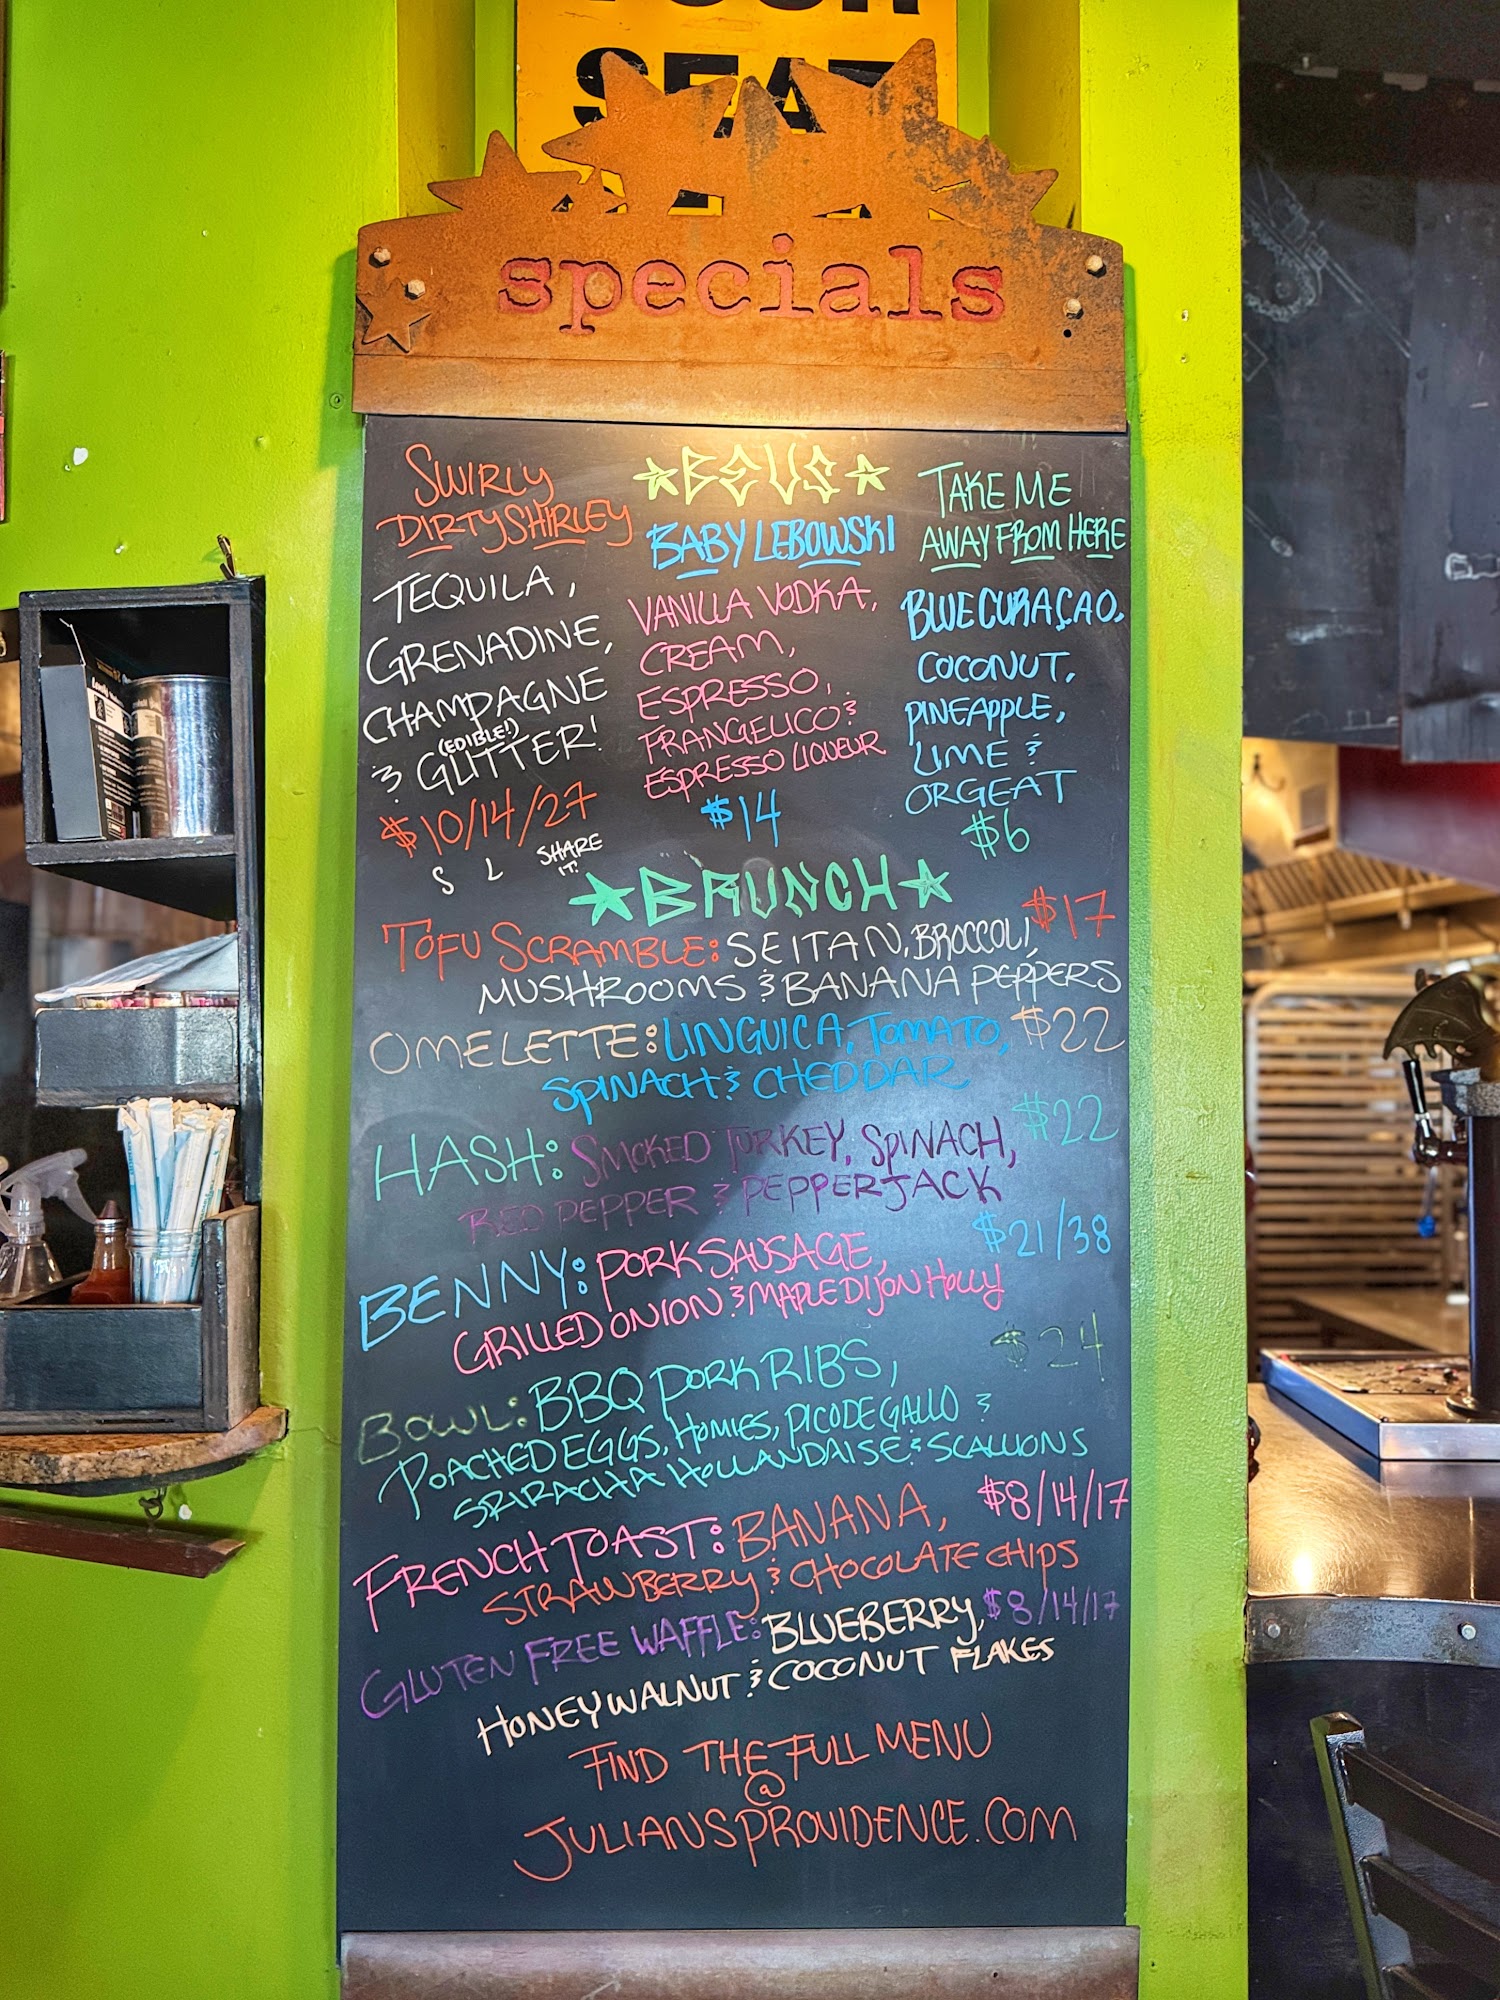 SEAT
specials
SWIRLY
DIRTY SHIRLEY
TEQUILA,
GRENADINE,
CHAMPAGNE
(EDIBLE!)
& GLITTER!
$10/14/27
S L SHARE
IT!
BEVS
BABY LEBOWSKI
VANILLA VODKA,
CREAM,
ESPRESSO,
FRANGELICO &
ESPRESSO LIQUEUR
$14
TAKE ME
AWAY FROM HERE
BLUE CURAÇAO,
COCONUT,
PINEAPPLE,
LIME &
ORGEAT
$6
BRUNCH
TOFU SCRAMBLE: SEITAN, BROCCOLI, $17
MUSHROOMS & BANANA PEPPERS
OMELETTE: LINGUICA, TOMATO, $22
SPINACH & CHEDDAR
HASH: SMOKED TURKEY, SPINACH, $22
RED PEPPER & PEPPERJACK
BENNY: PORK SAUSAGE, $21/38
GRILLED ONION & MAPLE DIJON HOLLY
BOWL: BBQ PORK RIBS, $24
POACHED EGGS, HOMIES, PICO DE GALLO &
SRIRACHA HOLLANDAISE & SCALLIONS
FRENCH TOAST: BANANA, $8/14/17
STRAWBERRY & CHOCOLATE CHIPS
GLUTEN FREE WAFFLE: BLUEBERRY, $8/14/17
HONEY WALNUT & COCONUT FLAKES
FIND THE FULL MENU
@
JULIANSPROVIDENCE.COM